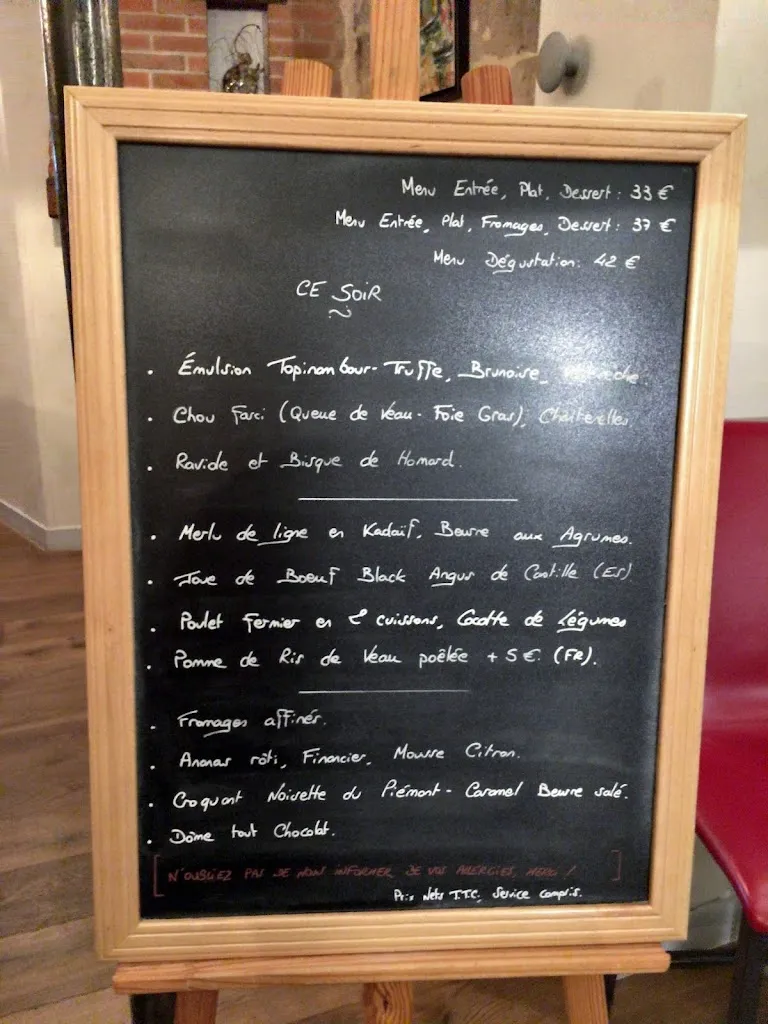 Menu Entrée, Plat, Dessert : 33 €
Menu Entrée, Plat, Fromages, Dessert : 37 €
Menu Dégustation : 42 €
CE SOIR
. Émulsion Topinambour - Truffe, Brunoise,
. Chou Farci (Queue de Veau - Foie Gras), Chanterelles.
. Raviole et Bisque de Homard.
. Merlu de ligne en Kadaïf, Beurre aux Agrumes.
. Joue de Boeuf Black Angus de Castille (ES)
. Poulet Fermier en 2 cuissons, Cocotte de Légumes
. Pomme de Ris de Veau poêlée + 5 €. (FR).
. Fromages affinés.
. Ananas rôti, Financier, Mousse Citron.
. Croquant Noisette du Piémont - Caramel Beurre salé.
. Dôme tout Chocolat.
[N'OUBLIEZ PAS DE NOUS INFORMER DE VOS ALLERGIES, MERCI !]
Prix Nets T.T.C, Service compris.